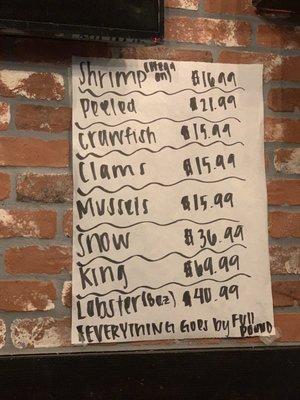 Shrimp (Head on) $16.99
Peeled $21.99
Crawfish $15.99
Clams $15.99
Mussels $15.99
Snow $36.99
King $69.99
Lobster (8oz) $40.99
EVERYTHING Goes by Full POUND